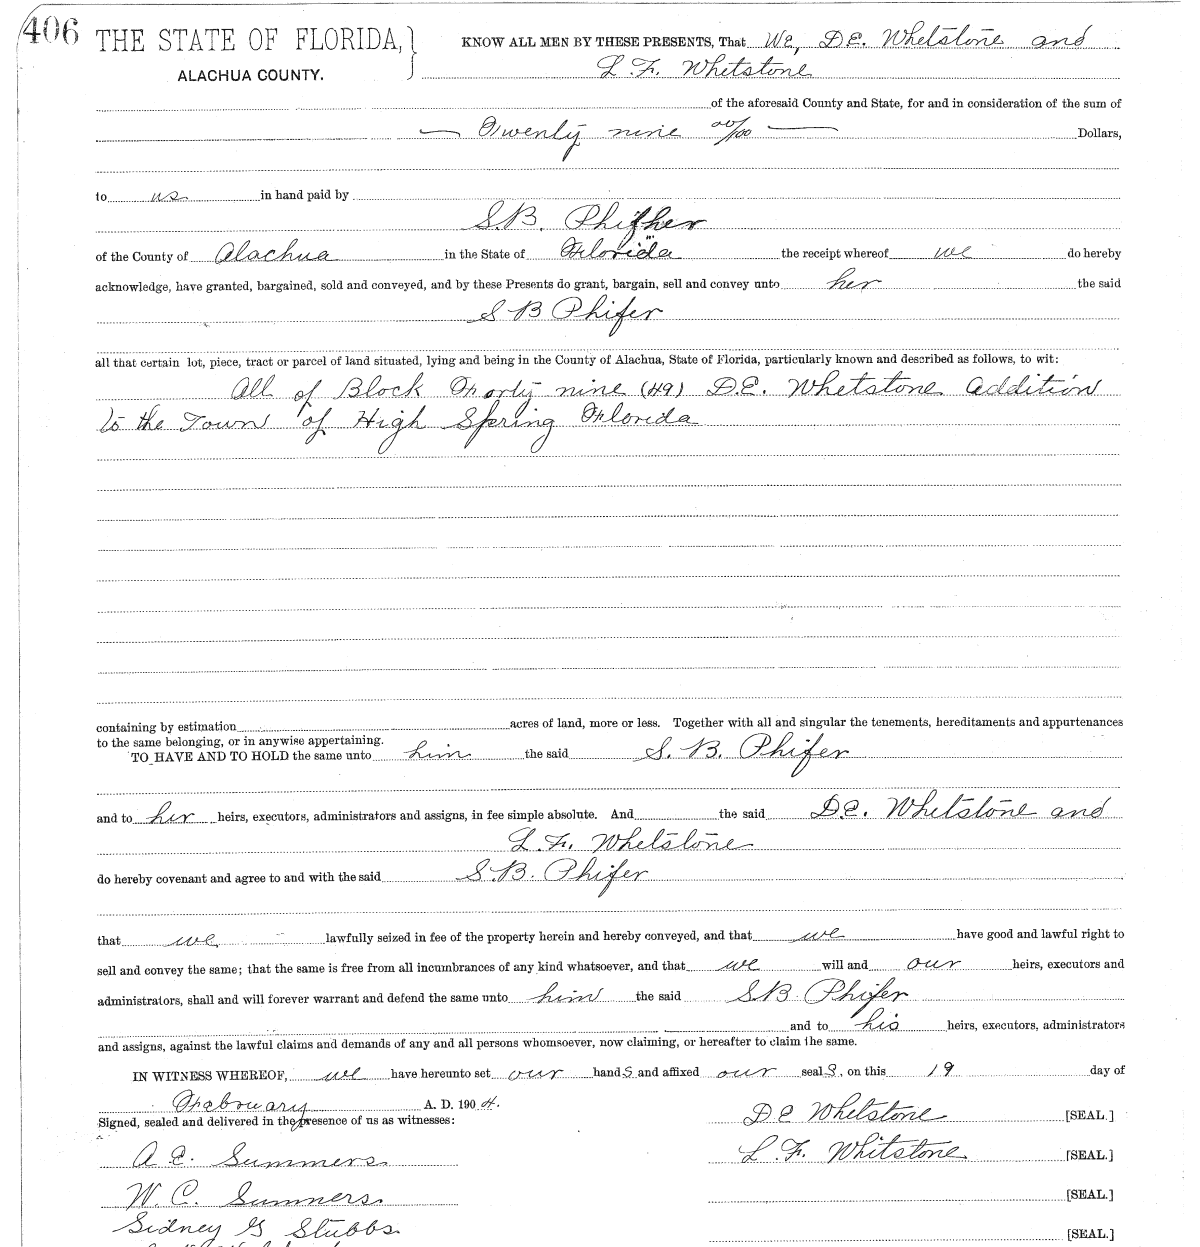 406 THE STATE OF FLORIDA, } KNOW ALL MEN BY THESE PRESENTS, That We, D.E. Whetstone and
ALACHUA COUNTY. L. F. Whetstone
of the aforesaid County and State, for and in consideration of the sum of
— Twenty nine 00/100 — Dollars,
to us in hand paid by
S.B. Phifher
of the County of Alachua in the State of Florida the receipt whereof we do hereby
acknowledge, have granted, bargained, sold and conveyed, and by these Presents do grant, bargain, sell and convey unto her the said
S B Phifer
all that certain lot, piece, tract or parcel of land situated, lying and being in the County of Alachua, State of Florida, particularly known and described as follows, to wit:
All of Block Forty nine (49) D.E. Whetstone Addition
to the Town of High Spring Florida
containing by estimation acres of land, more or less. Together with all and singular the tenements, hereditaments and appurtenances
to the same belonging, or in anywise appertaining.
TO HAVE AND TO HOLD the same unto him the said S. B. Phifer
and to her heirs, executors, administrators and assigns, in fee simple absolute. And the said D.E. Whetstone and
L. F. Whetstone
do hereby covenant and agree to and with the said S.B. Phifer
that we lawfully seized in fee of the property herein and hereby conveyed, and that we have good and lawful right to
sell and convey the same; that the same is free from all incumbrances of any kind whatsoever, and that we will and our heirs, executors and
administrators, shall and will forever warrant and defend the same unto him the said S.B. Phifer
and to his heirs, executors, administrators
and assigns, against the lawful claims and demands of any and all persons whomsoever, now claiming, or hereafter to claim the same.
IN WITNESS WHEREOF, we have hereunto set our hands and affixed our seals, on this 19 day of
Febouary A. D. 1904. D E Whetstone [SEAL.]
Signed, sealed and delivered in the presence of us as witnesses:
A E. Summers L. F. Whitstone [SEAL.]
W. C. Sumners [SEAL.]
Sidney G Stubbs [SEAL.]